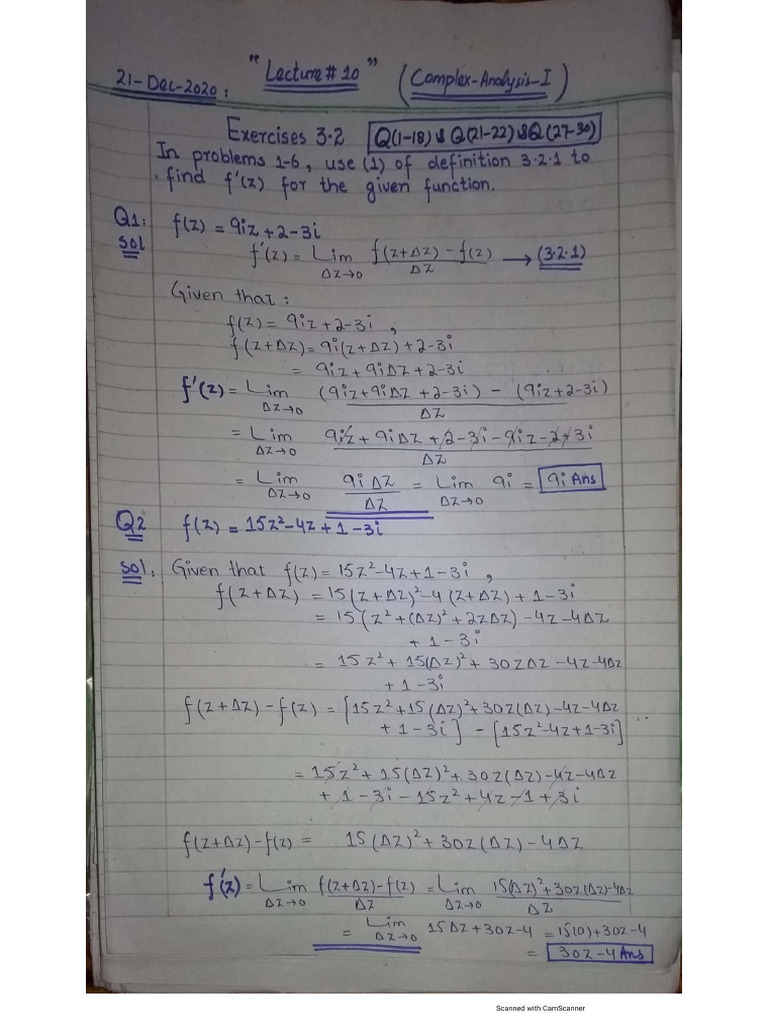 21-Dec-2020: "Lecture # 10" (Complex-Analysis-I)
Exercises 3.2 Q(1-18) & Q(21-22) & Q(27-30)
In problems 1-6, use (1) of definition 3.2.1 to
find f'(z) for the given function.
Q1: f(z) = 9iz+2-3i
Sol f'(z) = Lim Δz→0 f(z+Δz) - f(z) / Δz → (3.2.1)
Given that:
f(z) = 9iz+2-3i ,
f(z+Δz) = 9i(z+Δz)+2-3i
= 9iz+9iΔz+2-3i
f'(z) = Lim Δz→0 (9iz+9iΔz+2-3i) - (9iz+2-3i) / Δz
= Lim Δz→0 9iz+9iΔz+2-3i-9iz-2+3i / Δz
= Lim Δz→0 9iΔz / Δz = Lim Δz→0 9i = 9i Ans
Q2 f(z) = 15z²-4z+1-3i
Sol: Given that f(z) = 15z²-4z+1-3i ,
f(z+Δz) = 15(z+Δz)²-4(z+Δz)+1-3i
= 15(z²+(Δz)²+2zΔz)-4z-4Δz
+1-3i
= 15z²+15(Δz)²+30zΔz-4z-4Δz
+1-3i
f(z+Δz)-f(z) = [15z²+15(Δz)²+30z(Δz)-4z-4Δz
+1-3i] - [15z²-4z+1-3i]
= 15z²+15(Δz)²+30z(Δz)-4z-4Δz
+1-3i-15z²+4z-1+3i
f(z+Δz)-f(z) = 15(Δz)²+30z(Δz)-4Δz
f'(z) = Lim Δz→0 f(z+Δz)-f(z) / Δz = Lim Δz→0 15(Δz)²+30z(Δz)-4Δz / Δz
= Lim Δz→0 15Δz+30z-4 = 15(0)+30z-4
= 30z-4 Ans
Scanned with CamScanner